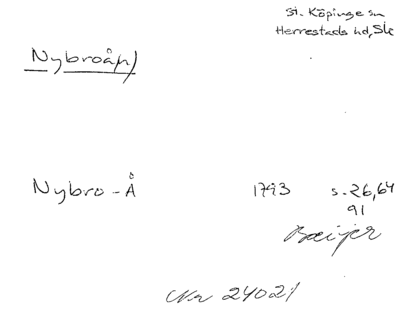 St. Köpinge sn
Herrestads hd, Sk
Nybroån)
Nybro-Å 1793 s. 26, 64
91
Baeijer
Nr 24021